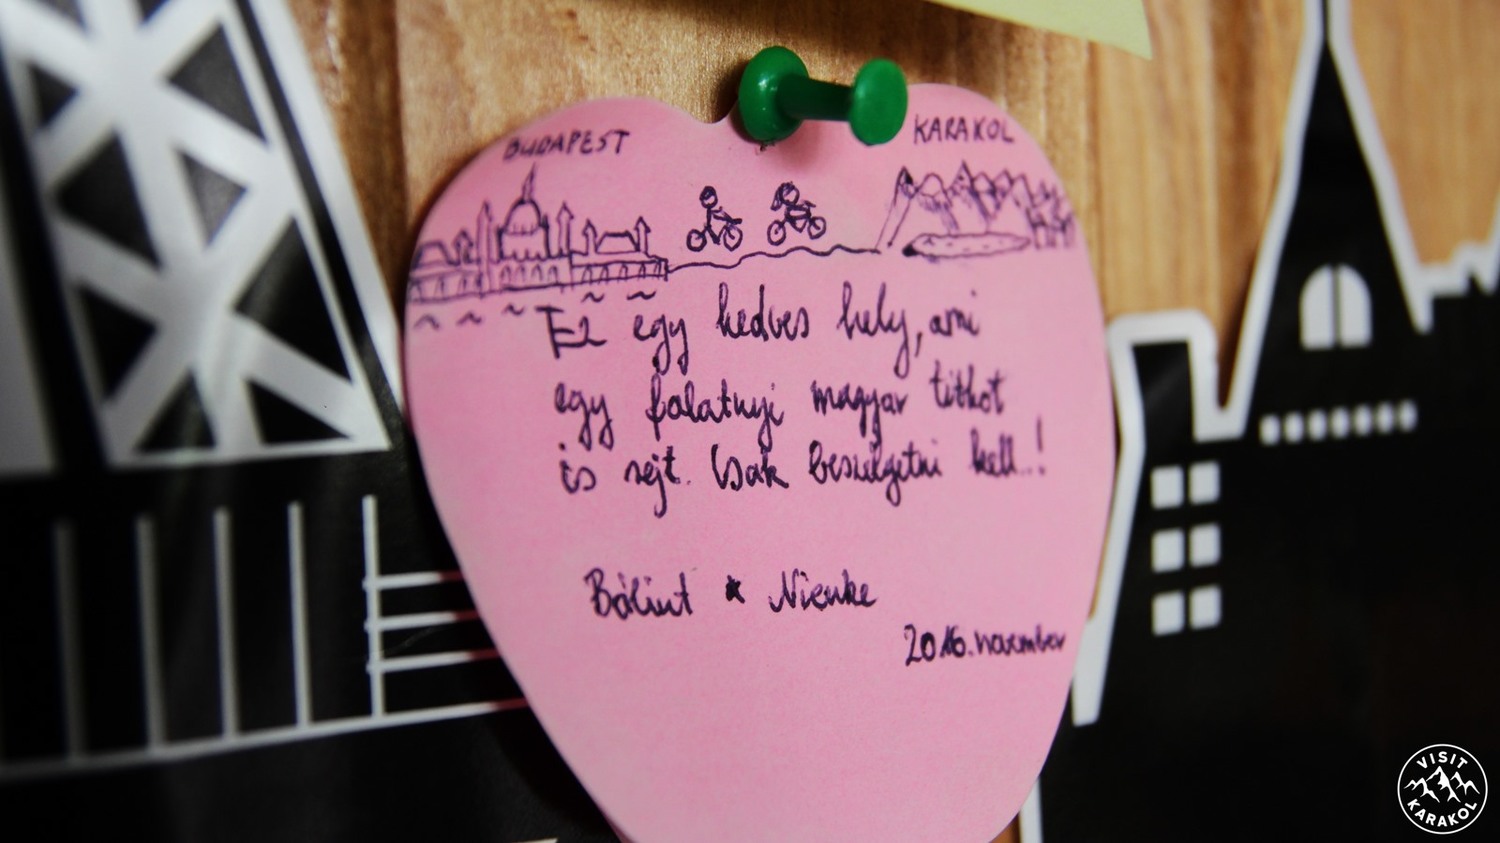 BUDAPEST
KARAKOL
Ez egy kedves hely, ami
egy falatnyi magyar titkot
is rejt. Csak beszélgetni kell..!
Bálint * Nienke
2016. november
VISIT
KARAKOL